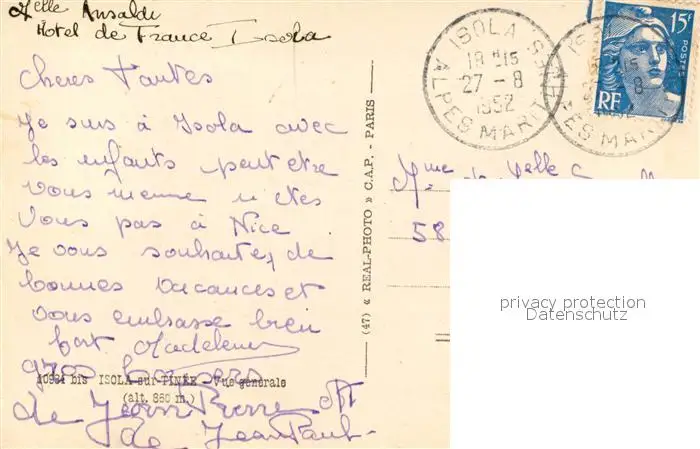 Melle Ansaldi
Hotel de France Isola
Cheres Tantes
Je suis à Isola avec
les enfants peut etre
vous meme n etes
vous pas à Nice
Je vous souhaite, de
bonnes vacances et
vous embrasse bien
fort Madeleine
gros baisers
10984 bis ISOLA-sur-TINÉE - Vue générale
(alt. 860 m.)
de Jean Pierre et
de Jean Paul
(47) « REAL-PHOTO » C.A.P. - PARIS
ISOLA
18 H 15
27 - 8
1952
ALPES MARIT
15F
RF
Mme
58
privacy protection
Datenschutz